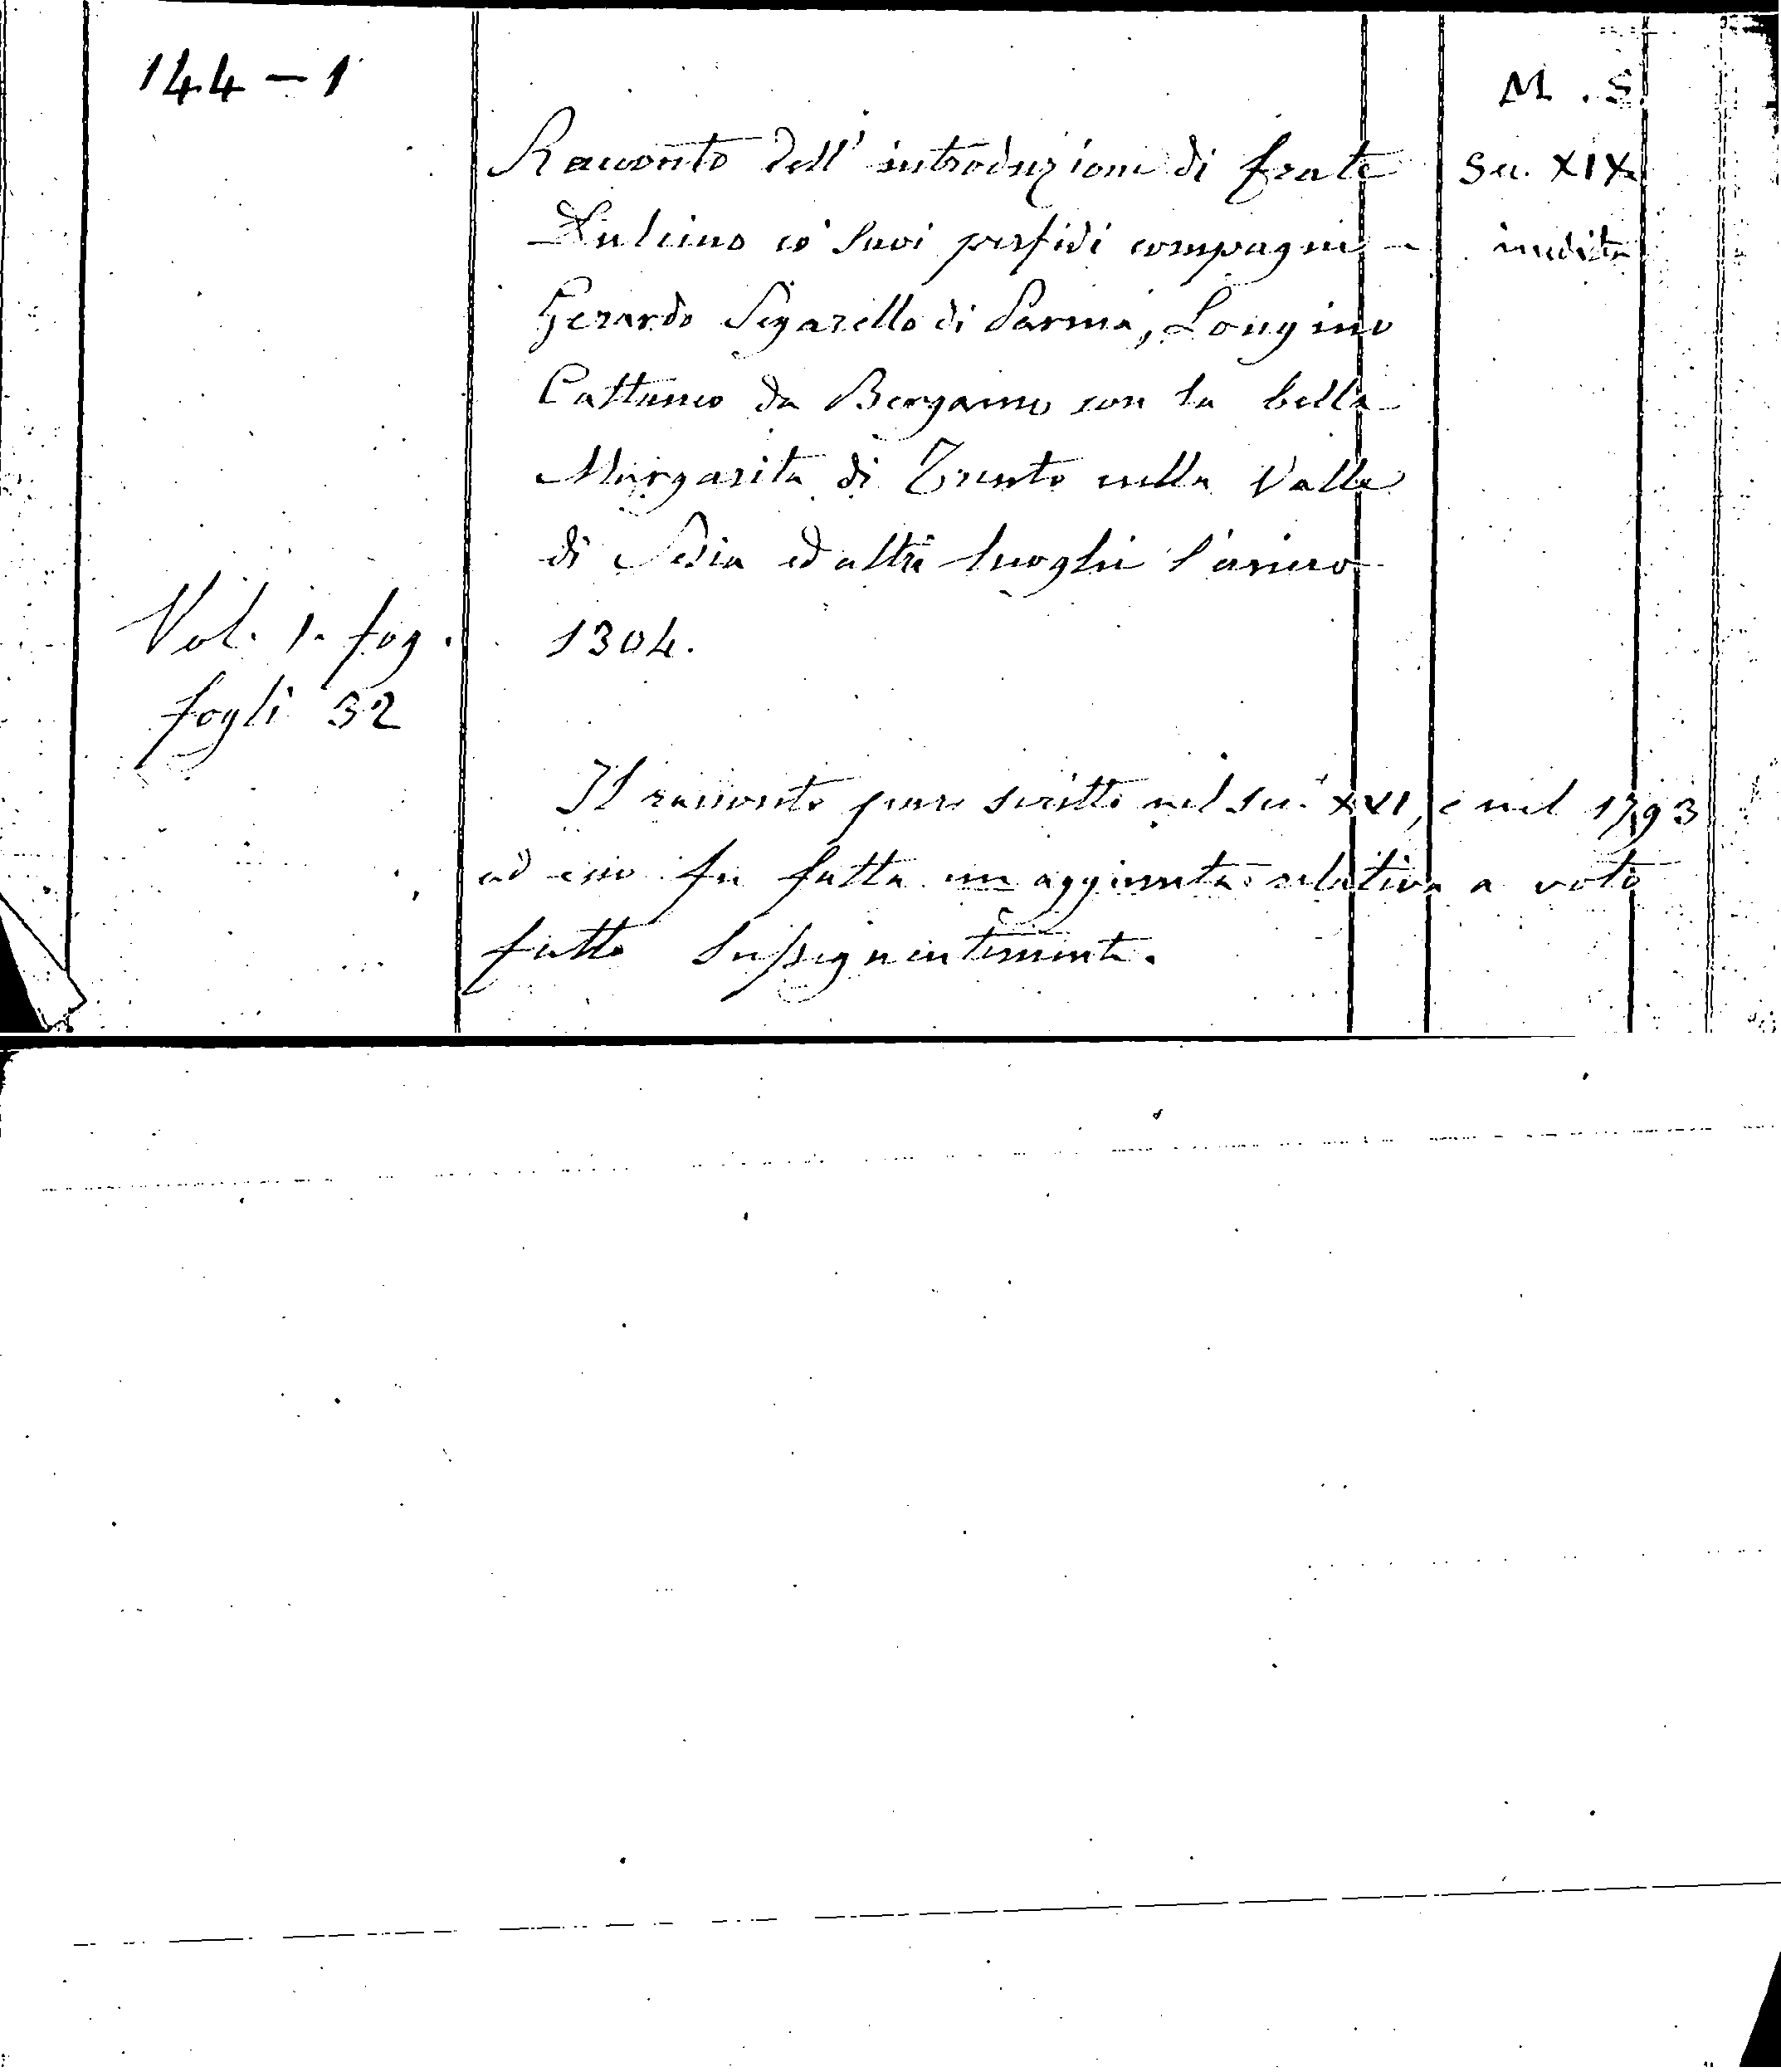 144 - 1
M. S.
Racconto dell' introduzione di frate
Sec. XIX
Dulcino co' suoi perfidi compagni -
inedito
Gerardo Segarello di Parma, Longino
Cattaneo da Bergamo con la bella
Margarita di Trento nella Valle
di Sesia ed altri luoghi l'anno
Vol. 1. fog.
1304.
fogli 32
Il racconto pare scritto nel sec. XVI, e nel 1793
ad esso fu fatta un aggiunta relativa a voto
fatto susseguentemente.